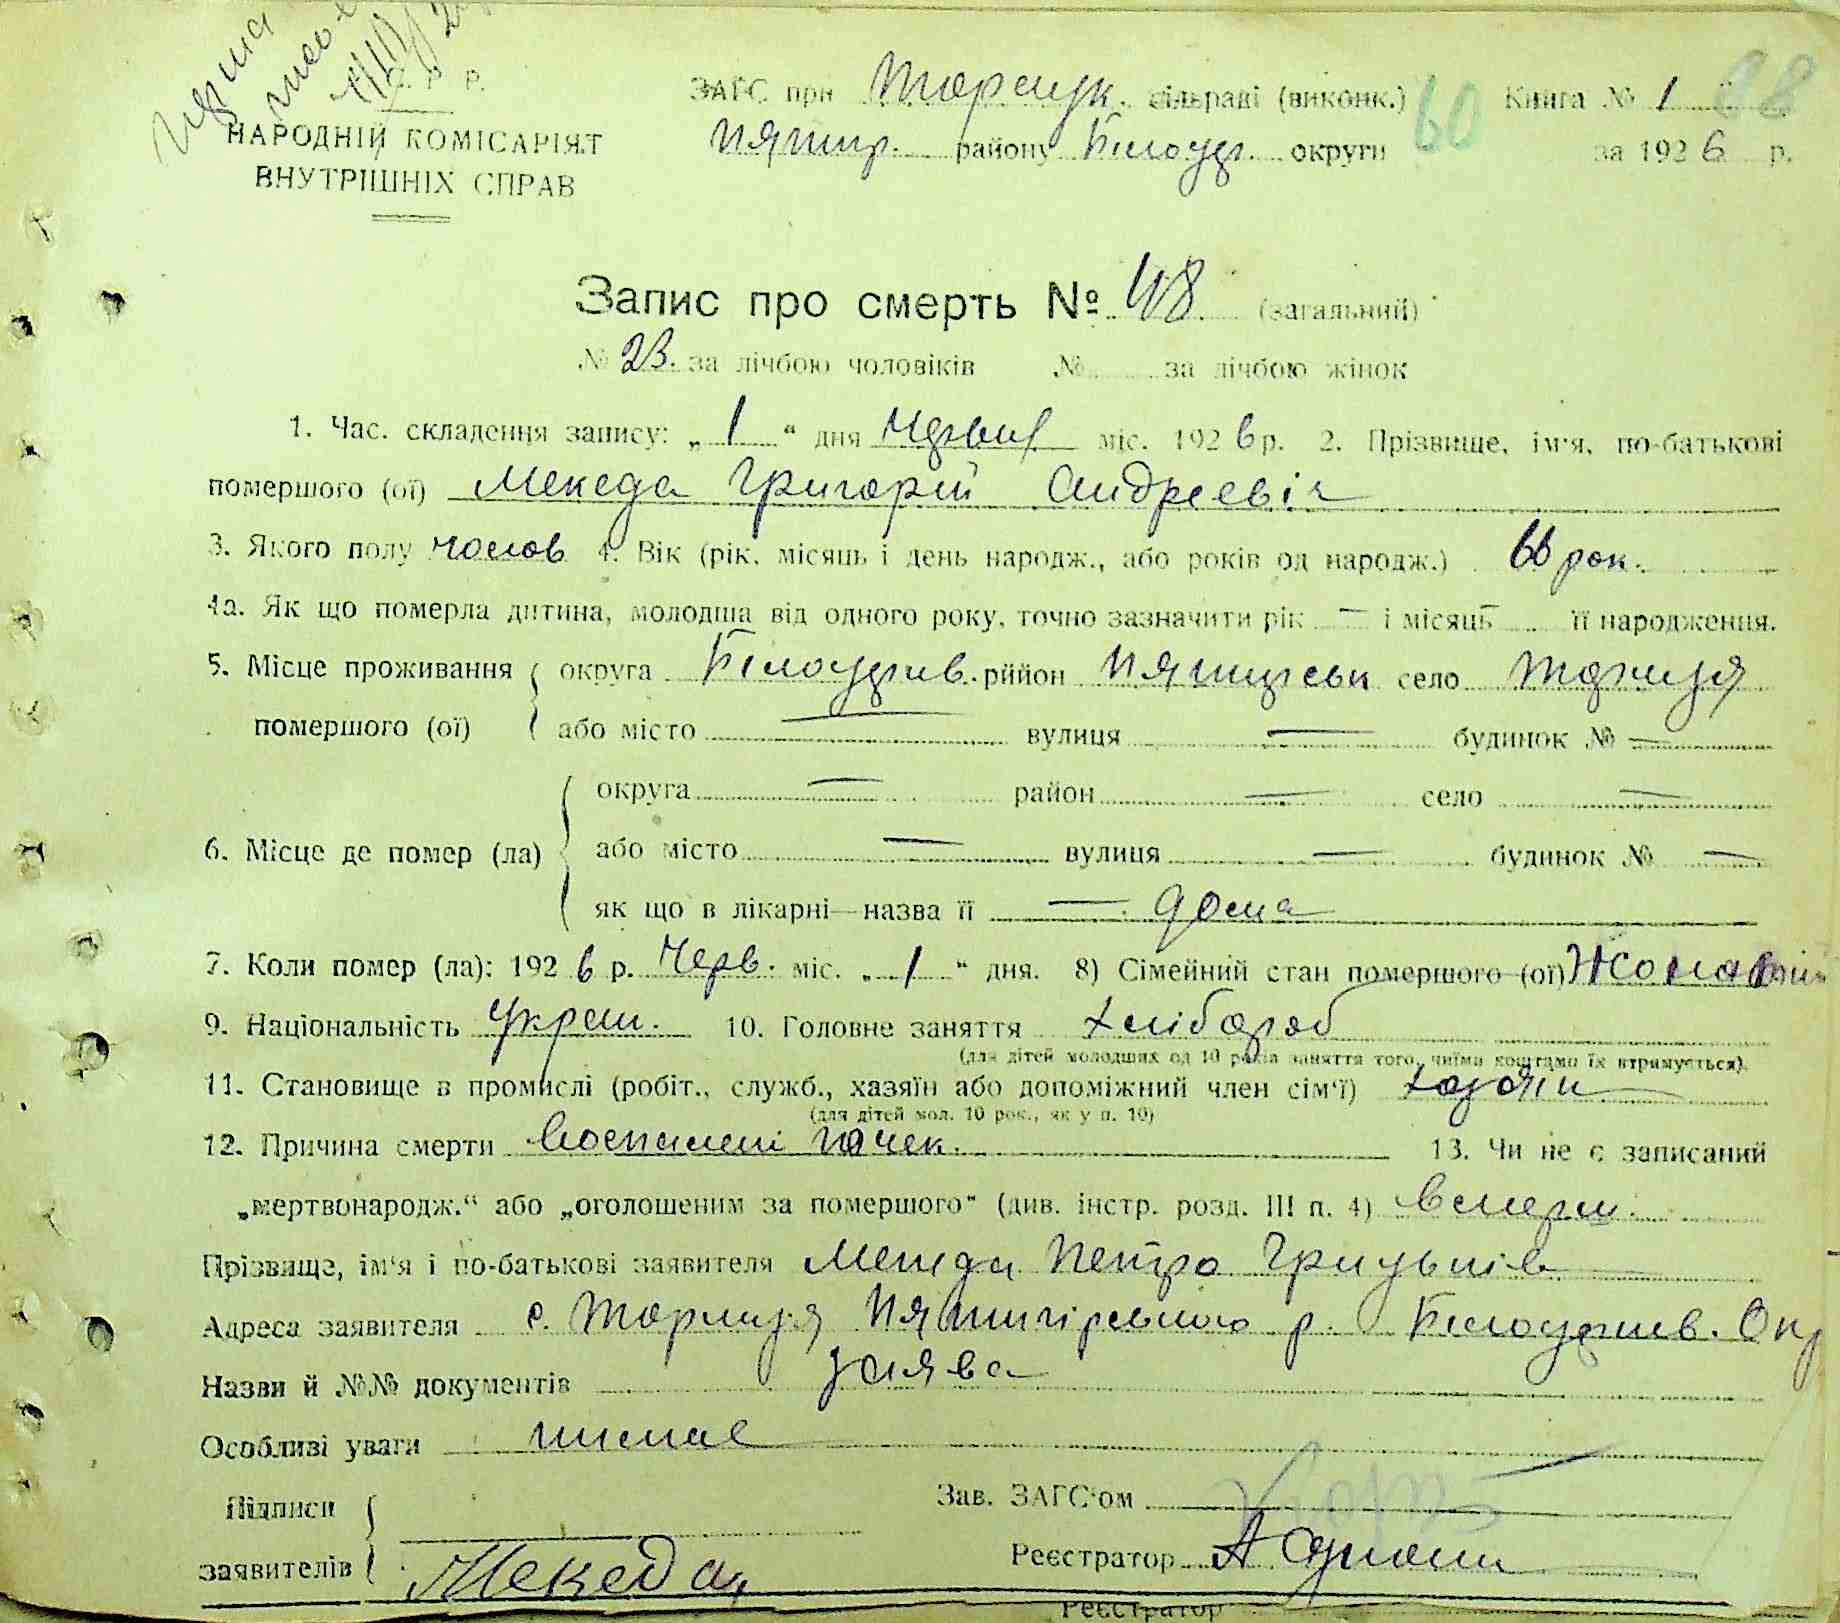 Р.
ЗАГС при Торчиц. сільраді (виконк.) 60 Книга № 1
НАРОДНІЙ КОМІСАРІЯТ
ВНУТРІШНІХ СПРАВ
Пятигр. району Білоцер. округи за 1926 р.
Запис про смерть № 48 (загальний)
№ 23. за лічбою чоловіків № за лічбою жінок
1. Час. складення запису: „ 1 “ дня Червня міс. 1926 р. 2. Прізвище, ім'я, по-батькові
помершого (ої) Мекеда Григорій Андреевіч
3. Якого полу чолов 4. Вік (рік, місяць і день народж., або років од народж.) 66 рок.
4а. Як що померла дитина, молодша від одного року, точно зазначити рік — і місяць — її народження.
5. Місце проживання помершого (ої) округа район село
або місто — вулиця — будинок № —
6. Місце де помер (ла) округа — район — село —
або місто — вулиця — будинок № —
як що в лікарні—назва її — дома
7. Коли помер (ла): 1926 р. Черв. міс. „ 1 “ дня. 8) Сімейний стан помершого (ої) Жонатий
9. Національність Украін. 10. Головне заняття хлібороб
(для дітей молодших од 10 років заняття того, чиїма коштами їх втримується).
11. Становище в промислі (робіт., служб., хазяїн або допоміжний член сім'ї) хазяїн
(для дітей мол. 10 рок., як у п. 10)
12. Причина смерти Воспалені почек. 13. Чи не є записаний
„мертвонародж.“ або „оголошеним за помершого“ (див. інстр. розд. III п. 4) вмерш.
Прізвище, ім'я і по-батькові заявителя Мекеда Петро Григорьев
Адреса заявителя с. Пятигірського р. Білоцерків. Окр
Назви й №№ документів заява
Особливі уваги немає
Підписи заявителів Мекеда
Зав. ЗАГС'ом
Реєстратор А
Реєстратор